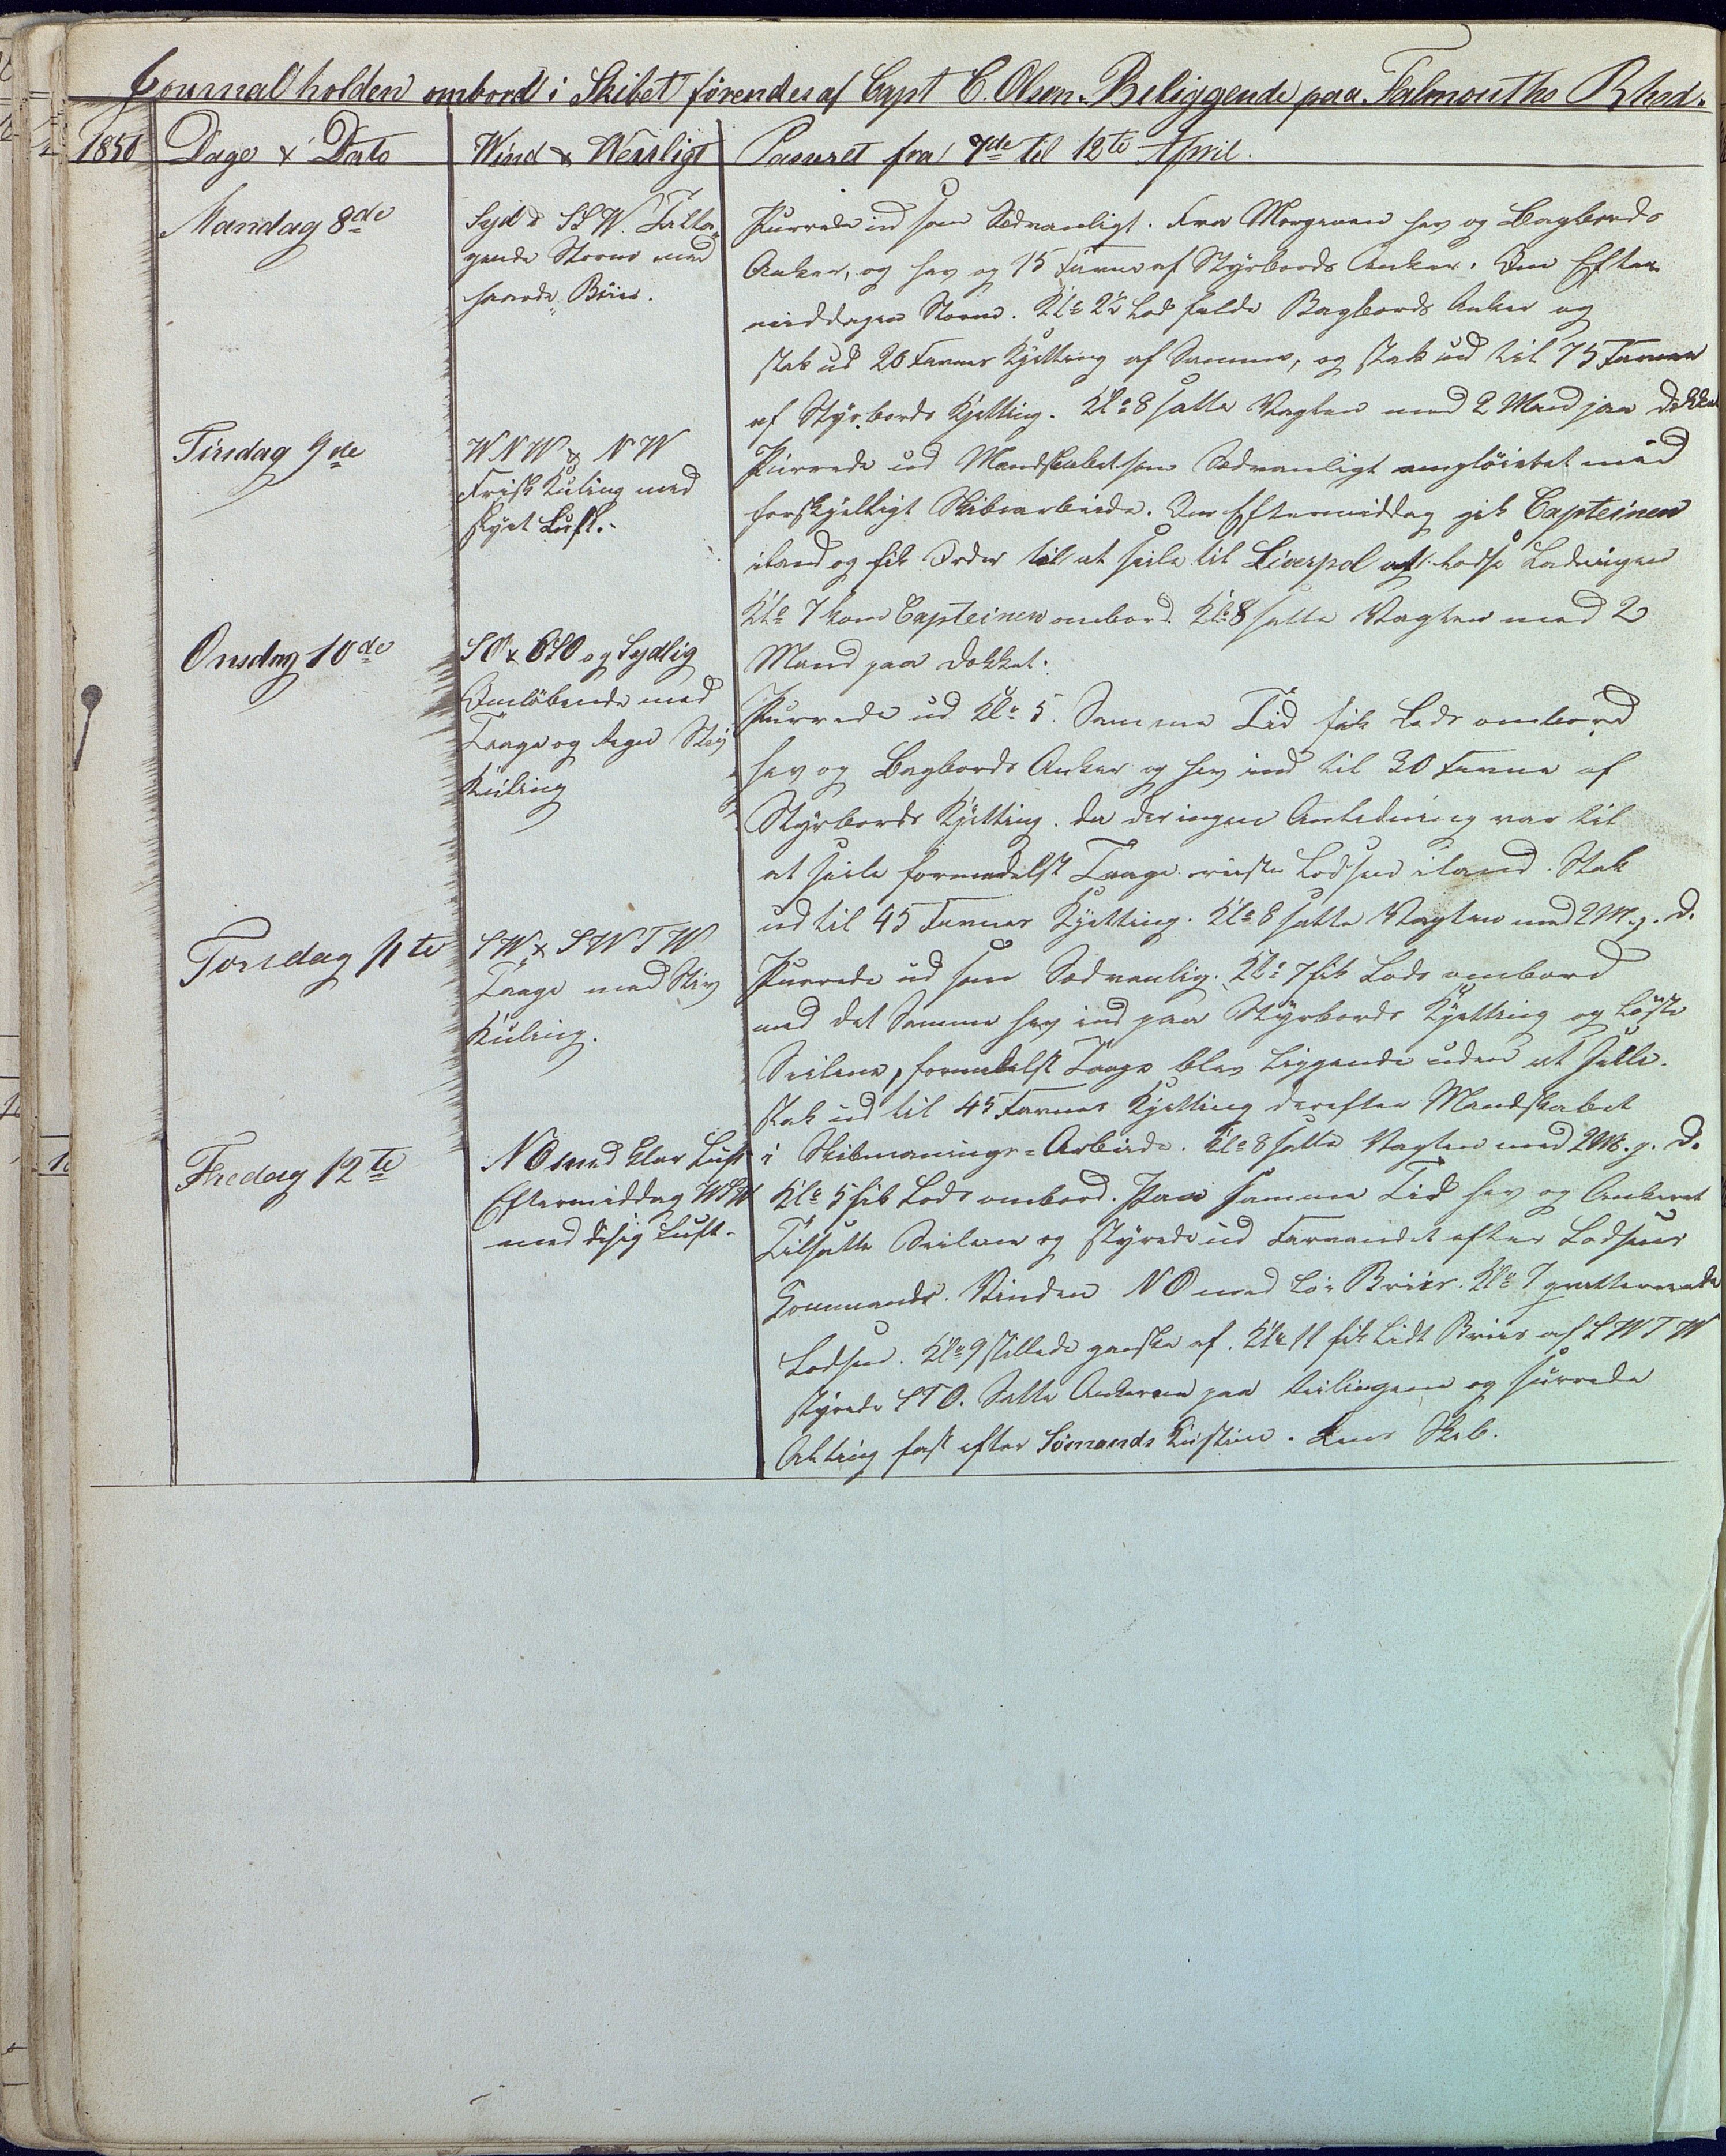 Journal holden ombord i Skibet førendes af Capt C. Olsen. Beliggende paa Falmouths Rhed.
1850 Dage & Dato Wind & Weirligt Passeret fra 7de til 12te April.
Mandag 8de
Syd & SSW. Tilta„
gende Storm med
haarde Biier.
Purrede ud som Sædvanligt. Fra Morgenen hev og Bagbords
Anker, og hev og 15 Favne af Styrbords Anker. Om Efter
middagen Storm. Kl: 2½ lod falde Bagbords Anker og
stak ud 20 Favner Kjetting af Samme, og stak ud til 75 Favne
af Styrbords Kjetting. Kl: 8 satte Vagten med 2 Mand paa Dekket
Tirsdag 9de
WNW & NW
Frisk Kuling med
skyet Luft.
Purrede ud Mandskabet som Sædvanligt
forskjelligt Skibsarbeide. Om Eftermiddag gik Capteinen
iland og fik Order til at seile til Liverpol at losse Ladningen
Kl: 7 kom Capteinen ombord. Kl: 8 satte Vagten med 2
Mand paa Dekket.
Onsdag 10de
SO & OSO og Sydlig
Omløbende med
Taage og Regn Stiv
Kuling
Purrede ud Kl: 5. Samme Tid fik Lods ombord
hev og Bagbords Anker og hev ind til 30 Favne af
Styrbords Kjetting. da der ingen Anledning var til
at seile formedelst Taage reiste Lodsen iland. Stak
ud til 45 Favner Kjetting. Kl: 8 satte Vagten med 2 M. p. D.
Torsdag 11te
SW & SWTW
Taage med Stiv
Kuling.
Purrede ud som Sædvanlig. Kl: 7 fik Lods ombord
med det Samme hev ind paa Styrbords Kjetting og løste
Seilene, formedelst Taage blev liggende uden at seile.
stak ud til 45 Favner Kjetting derefter Mandskabet
i Skibmanings-Arbeide. Kl: 8 satte Vagten med 2 M. p. D.
Fredag 12te
NO med klar Luft
Eftermiddag WSW
med disig Luft.
Kl: 5 fik Lods ombord. Paa samme Tid hev og Ankeret
Tilsatte Seilene og styrede ud Farvandet efter Lodsens
Commando. Vinden NO med løi Briis. Kl: 7 qvitterede
Lodsen. Kl: 9 stillede ganske af. Kl: 11 fik lidt Briis af SWTW
styrede STO. Satte Ankerne paa og surrede
Alting fast efter Sømands Kustiim. Lens Skib.